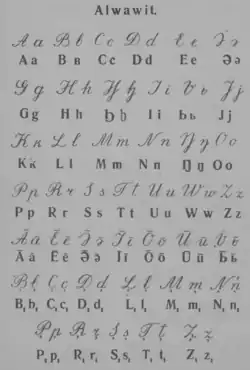 Alwawit.
A a B b C c D d E e Ə ə
Aa Bʙ Cc Dd Ee Əə
G g H h Ꜧ ꜧ I i Ь ь J j
Gg Hh Ꜧꜧ Ii Ьь Jj
K k L l M m N n Ŋ ŋ O o
Kk Ll Mm Nn Ŋŋ Oo
P p R r S s T t U u W w Z z
Pp Rr Ss Tt Uu Ww Zz
Ā ā Ē ē Ə̄ ə̄ Ī ī Ō ō Ū ū Ь̄ ь̄
Āā Ēē Ə̄ə̄ Īī Ōō Ūū Ь̄ь̄
B̦ b̦ C̦ c̦ D̦ d̦ L̦ l̦ M̦ m̦ N̦ n̦
B̦, b̦, C̦, c̦, D̦, d̦, L̦, l̦, M̦, m̦, N̦, n̦,
P̦ p̦ R̦ r̦ Ș ș Ț ț Z̦ z̦
P̦, p̦, R̦, r̦, Ș, ș, Ț, ț, Z̦, z̦,